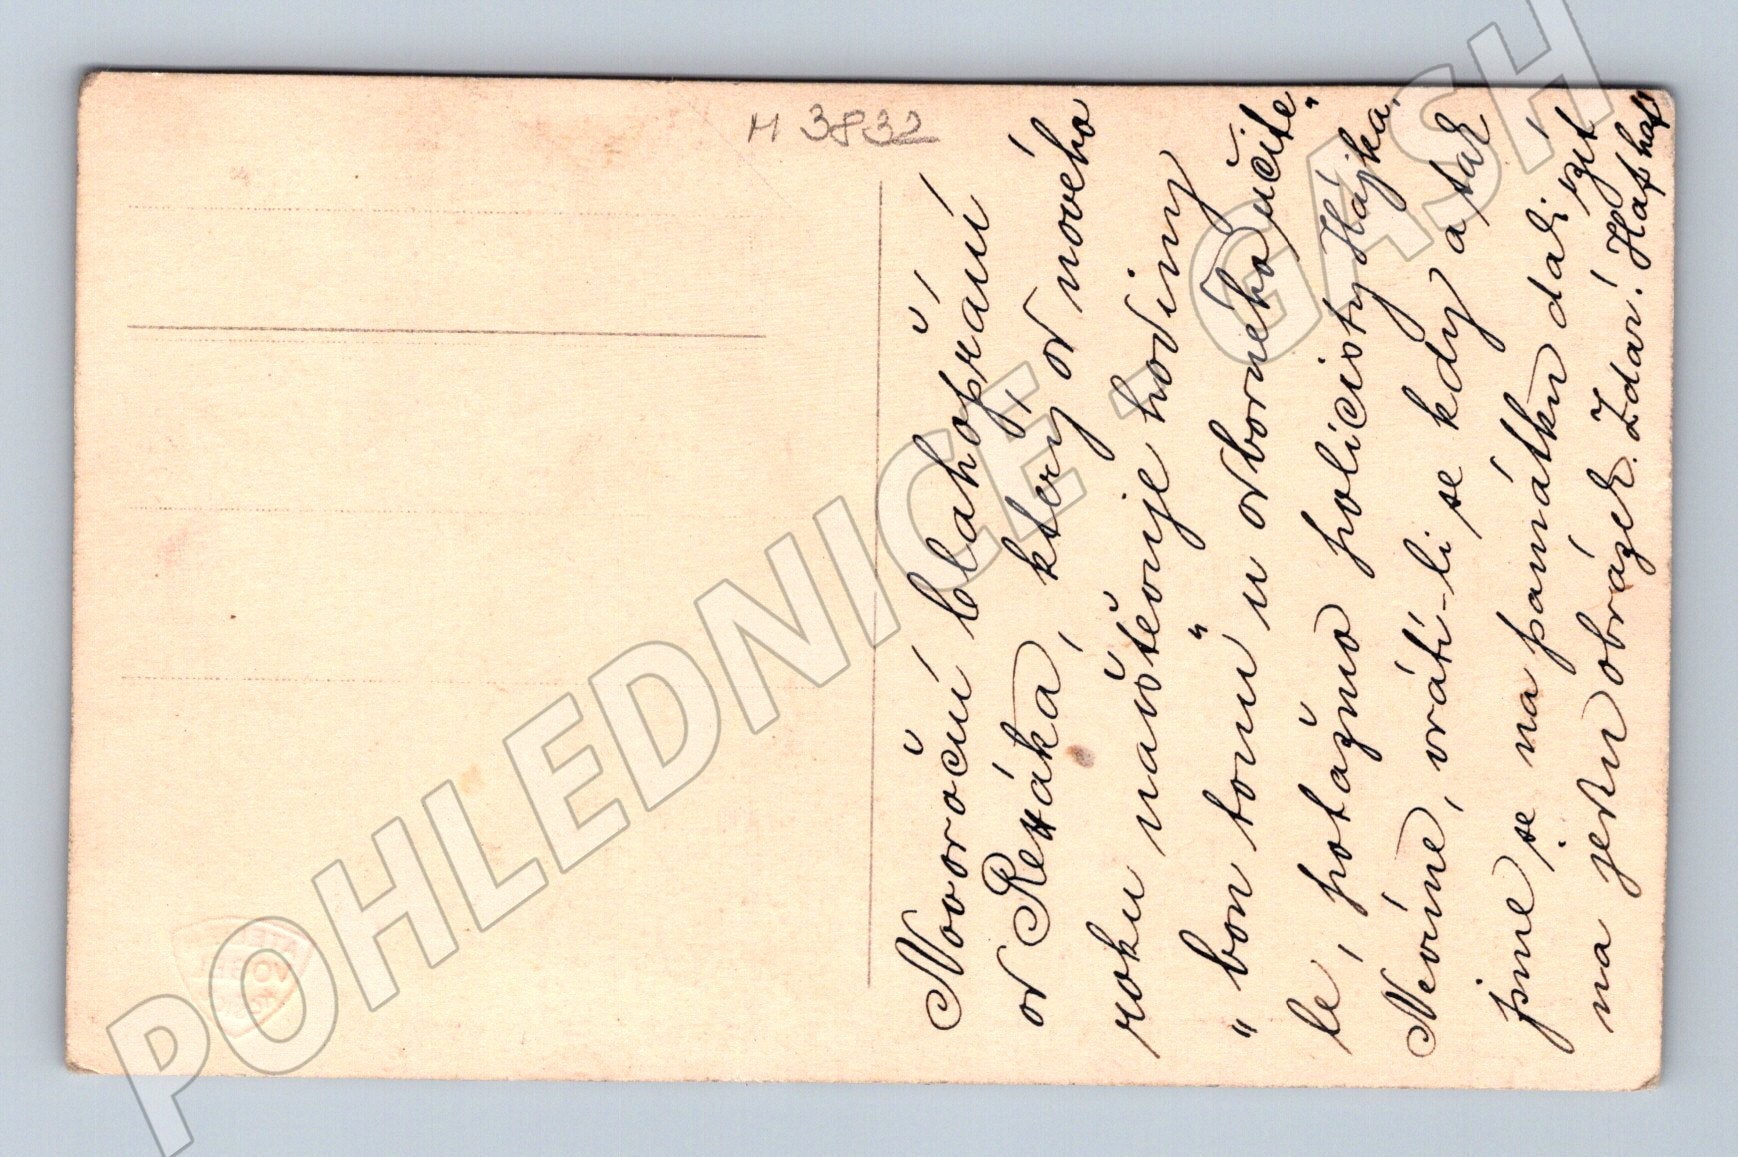 M 3832
Novoroční blahopřání
od Rexáka, který od nového
roku navštěvuje hodiny
"bon tonu" u odborného „učite"
le, potažmo policisty Hájka.
Nevíme, vrátí-li se kdy a tak
jsme se na památku dali zjet
na jednu obrázek. Zdar! Haf haf
POHLEDNICE - GASH